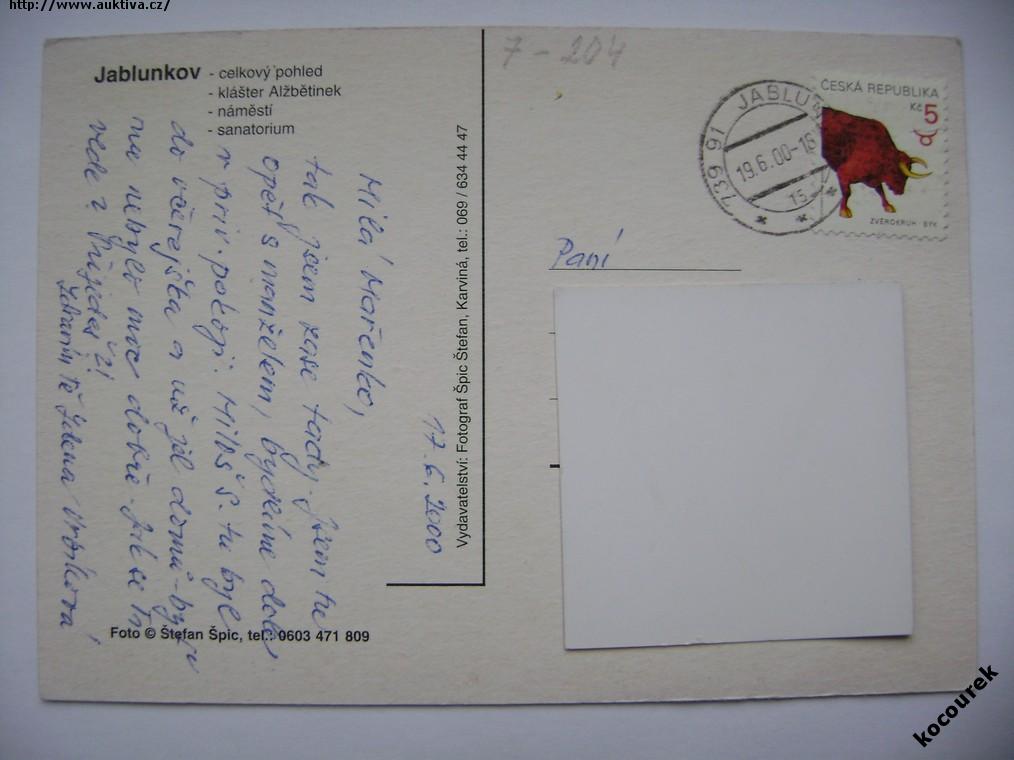 http://www.auktiva.cz/
Jablunkov - celkový pohled
- klášter Alžbětinek
- náměstí
- sanatorium
17.6.2000
Milá Mařenko,
tak jsem zase tady. Jsem tu
opět s manželem, bydlíme dole
v priv. pokoji. Miloš S. tu byl
do včerejška a už jel domů - by
mu nebylo moc dobře. Jak se ti
vede? Přijedeš?!
Zdravím Tě Helena
Foto © Štefan Špic, tel.: 0603 471 809
Vydavatelství: Fotograf Špic Štefan, Karviná, tel.: 069 / 634 44 47
7 - 204
739 91 JABLU
19.6.00-16
15
ČESKÁ REPUBLIKA
Kč 5
ZVĚROKRUH - BÝK
Paní
kocourek